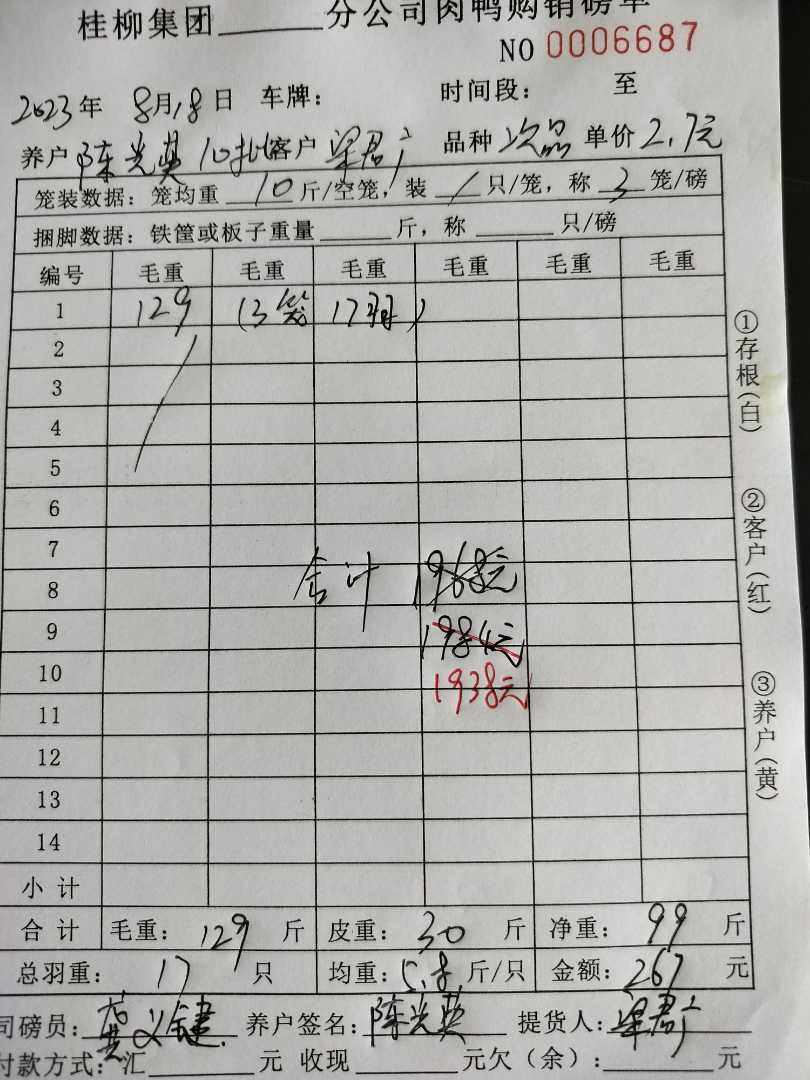 桂柳集团______分公司肉鸭购销磅单
NO 0006687
2023年 8月18日 车牌: 时间段: 至
养户 陈光英 10批 客户 梁君广 品种 次品 单价 2.7元
笼装数据: 笼均重 10 斤/空笼, 装 / 只/笼, 称 3 笼/磅
捆脚数据: 铁筐或板子重量______斤, 称______只/磅
编号 毛重 毛重 毛重 毛重 毛重 毛重
1 129 (3笼 17羽)
2
3
4
5
6
7
8 合计 1968元
9 1984元
10 1938元
11
12
13
14
小计
合计 毛重: 129 斤 皮重: 30 斤 净重: 99 斤
总羽重: 17 只 均重: 5.8 斤/只 金额: 267 元
司磅员: 义键 养户签名: 陈光英 提货人: 梁君广
付款方式: 汇______元 收现______元欠(余):______元
①存根(白)
②客户(红)
③养户(黄)